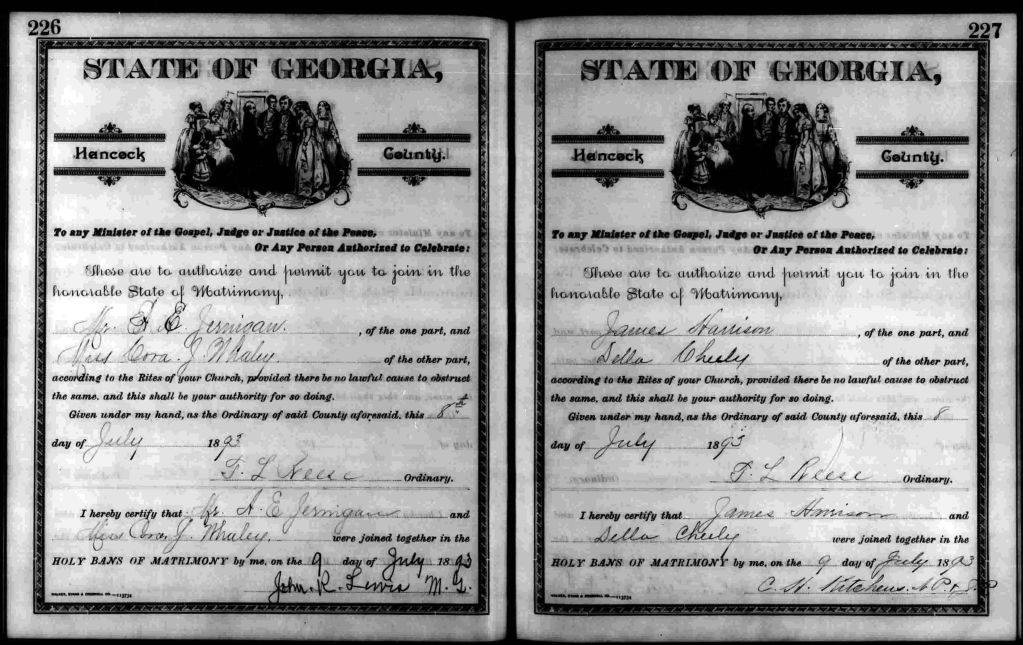 226
STATE OF GEORGIA,
Hancock County.
To any Minister of the Gospel, Judge or Justice of the Peace,
Or Any Person Authorized to Celebrate:
These are to authorize and permit you to join in the
honorable State of Matrimony,
Mr A. E. Jernigan. , of the one part, and
Miss Cora. J. Whaley. of the other part,
according to the Rites of your Church, provided there be no lawful cause to obstruct
the same, and this shall be your authority for so doing.
Given under my hand, as the Ordinary of said County aforesaid, this 8th
day of July 1893
T. L Reese Ordinary.
I hereby certify that Mr. A. E Jernigan and
Miss Cora J. Whaley. were joined together in the
HOLY BANS OF MATRIMONY by me, on the 9 day of July 1893
John. R. Lewis M. G.
227
STATE OF GEORGIA,
Hancock County.
To any Minister of the Gospel, Judge or Justice of the Peace,
Or Any Person Authorized to Celebrate:
These are to authorize and permit you to join in the
honorable State of Matrimony,
James Harrison , of the one part, and
Della Cheely of the other part,
according to the Rites of your Church, provided there be no lawful cause to obstruct
the same, and this shall be your authority for so doing.
Given under my hand, as the Ordinary of said County aforesaid, this 8
day of July 1893
T. L Reese Ordinary.
I hereby certify that James Harrison and
Della Cheely were joined together in the
HOLY BANS OF MATRIMONY by me, on the 9 day of July 1893
C. H. Kitchens.